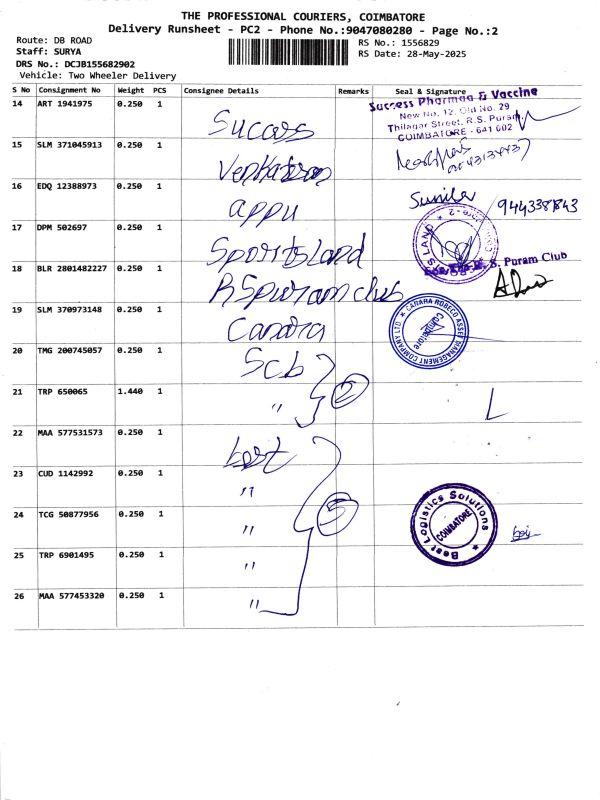 THE PROFESSIONAL COURIERS, COIMBATORE
Delivery Runsheet - PC2 - Phone No.:9047080280 - Page No.:2
Route: DB ROAD
Staff: SURYA
DRS No.: DCJB155682902
Vehicle: Two Wheeler Delivery
RS No.: 1556829
RS Date: 28-May-2025
S No Consignment No Weight PCS Consignee Details Remarks Seal & Signature
14 ART 1941975 0.250 1 Success
Success Pharmaa & Vaccine
New No. 12, Old No. 29
Thilagar Street, R.S. Puram
COIMBATORE - 641 002
15 SLM 371045913 0.250 1
16 EDQ 12388973 0.250 1 appu
17 DPM 502697 0.250 1 Sportsland
18 BLR 2801482227 0.250 1 RSpuram club
R. S. Puram Club
19 SLM 370973148 0.250 1 Canara
CANARA ROBECO ASSET MANAGEMENT COMPANY LTD
Coimbatore
20 TMG 200745057 0.250 1 Scb
21 TRP 650065 1.440 1 "
2
22 MAA 577531573 0.250 1
23 CUD 1142992 0.250 1 "
24 TCG 50877956 0.250 1 "
5
Best Logistics Solutions
COIMBATORE
25 TRP 6901495 0.250 1 "
26 MAA 577453320 0.250 1 "